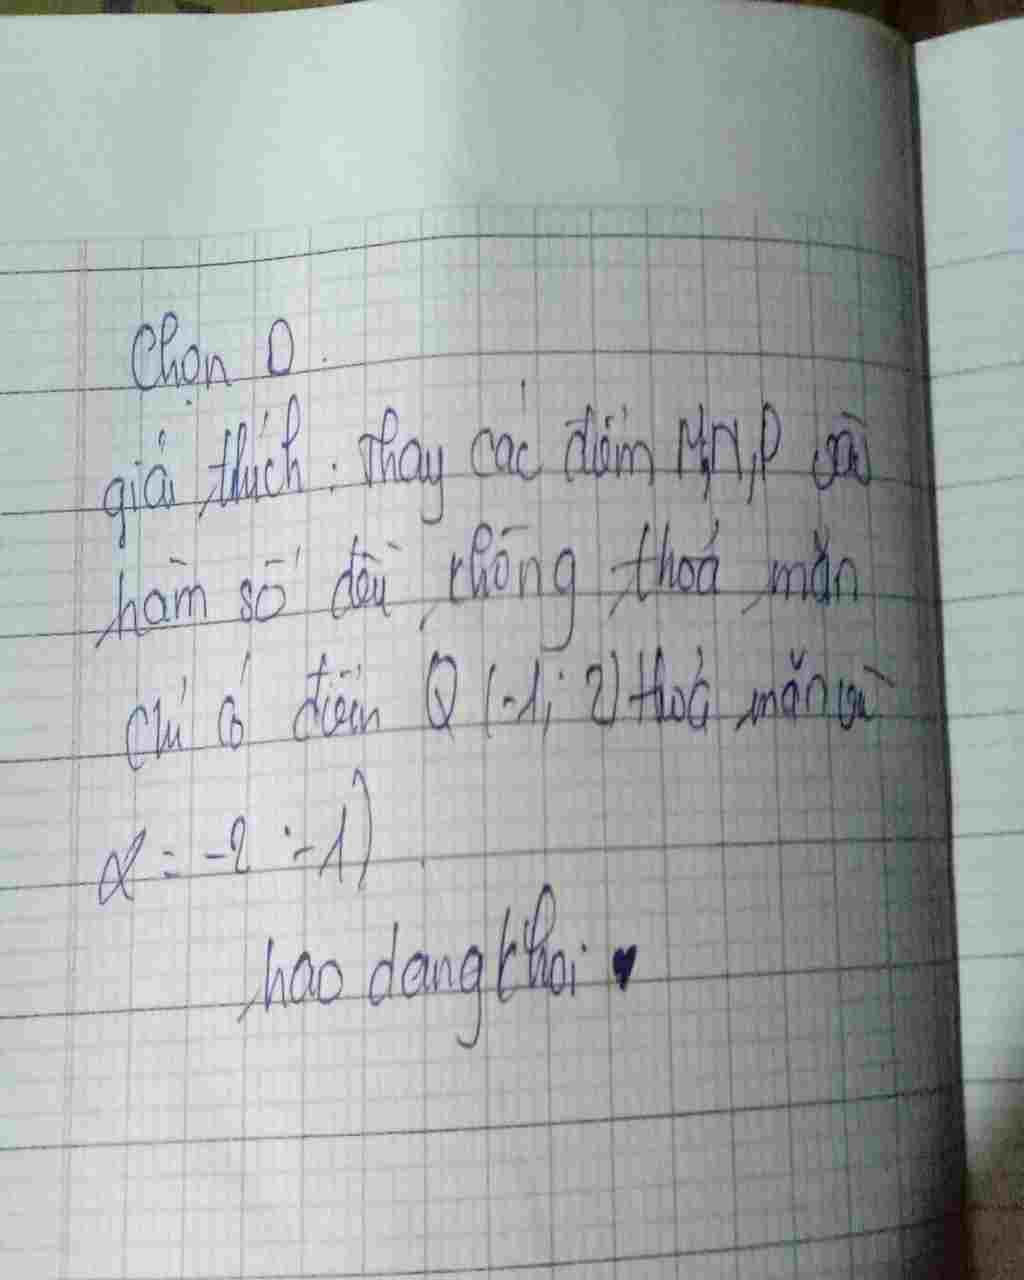 Chọn D.
giải thích: Thay các điểm M,N,P vào
hàm số đều không thoả mãn
chỉ có điểm Q (-1; 2) thoả mãn vì
2 = -2 . -1)
haodangkhoi